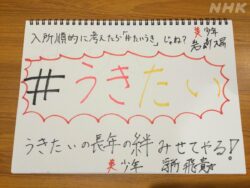 NHK
入所順的に考えたら「#たいうき」じゃね?
美 少年
岩﨑大昇
#うきたい
うきたいの長年の絆みせてやる!
美 少年